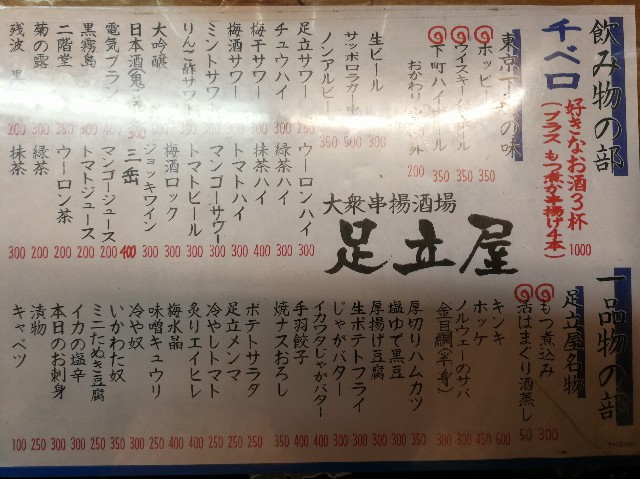 飲み物の部
千ベロ
好きなお酒3杯
(プラス もつ煮か串揚げ4本)
1000
東京下町の味
ホッピー 350
ウイスキーハイボール 350
下町ハイボール 350
おかわり 200
生ビール
サッポロラガー 500
ノンアルビール 350
足立サワー 250
チュウハイ
梅干サワー
梅酒サワー
ミントサワー
りんご酢サワー
大吟醸
日本酒
電気ブラン 400
黒霧島
二階堂
菊の露 300
残波 200
ウーロンハイ 300
緑茶ハイ 300
抹茶ハイ 400
トマトハイ 300
マンゴーサワー 300
トマトビール
梅酒ロック 300
ジョッキワイン 300
三岳 400
マンゴージュース 200
トマトジュース 200
ウーロン茶 200
緑茶 200
抹茶 300
大衆串揚酒場
足立屋
一品物の部
足立屋名物
もつ煮込み 300
活はまぐり酒蒸し 50
キンキ 600
ホッケ 450
ノルウェーのサバ 300
金目鯛(半身) 300
厚切りハムカツ
塩ゆで黒豆
厚揚げ豆腐
生ポテトフライ
じゃがバター
イカワタじゃがバター
手羽餃子
焼ナスおろし 350
ポテトサラダ 250
足立メンマ
冷やしトマト
炙りエイヒレ
梅水晶
味噌キュウリ
冷や奴
いかわた奴
ミニたぬき豆腐
イカの塩辛
本日のお刺身 300
漬物 250
キャベツ 100